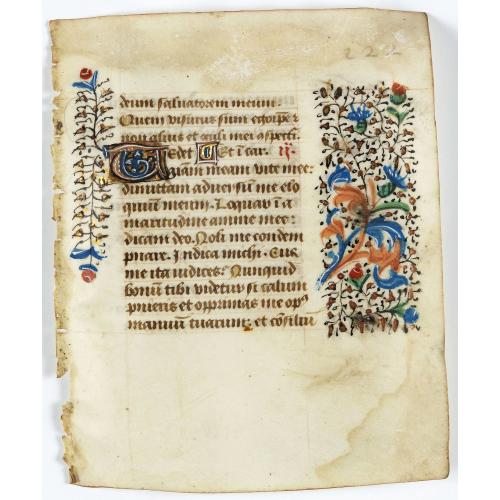 222
deum salvatorem meum.
Quem visurus sum ego ipse
non alius et oculi mei aspecturi
Tedet Et in car. ij.
animam meam vite mee
dimittam adversum me elo
quium meum. Loquar in a
maritudine anime mee:
dicam deo. Noli me condem
pnare. Indica michi. Cur
me ita iudices: Nunquid
bonum tibi videtur si calum
pnieris et opprimas me opus
manuum tuarum: et consilium